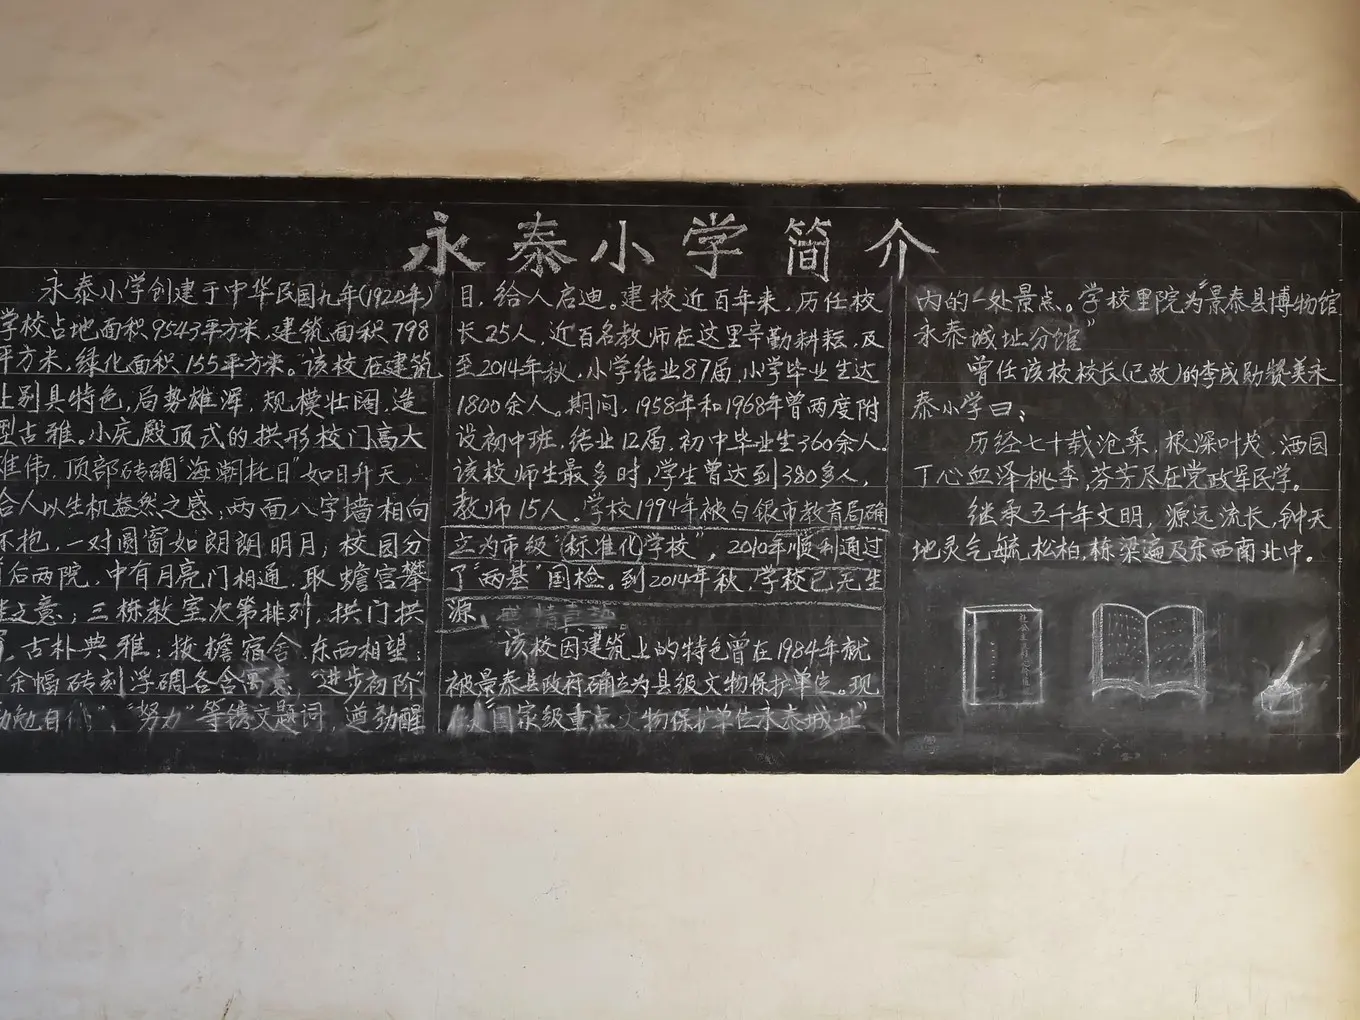 永泰小学简介
永泰小学创建于中华民国九年(1920年)
学校占地面积9543平方米,建筑面积798
平方米,绿化面积155平方米。该校在建筑
上别具特色,局势雄浑,规模壮阔,造
型古雅。小庑殿顶式的拱形校门高大
雄伟,顶部砖碉"海潮托日"如日升天,
合人以生机盎然之感;两面八字墙相向
环抱,一对圆窗如朗朗明月;校园分
前后两院,中有月亮门相通,取蟾宫攀
桂之意;三栋教室次第排列,拱门拱
窗,古朴典雅;拔檐宿舍东西相望;
余幅砖刻浮碉各含寓意,"进步初阶"
勉自","努力"等镌文题词,遒劲醒
目,给人启迪。建校近百年来,历任校
长25人,近百名教师在这里辛勤耕耘,及
至2014年秋,小学结业87届,小学毕业生达
1800余人。期间,1958年和1968年曾两度附
设初中班,结业12届,初中毕业生360余人。
该校师生最多时,学生曾达到380多人,
教师15人。学校1994年被白银市教育局确
立为市级"标准化学校",2010年顺利通过
了"两基"国检。到2014年秋,学校已无生
源,
该校因建筑上的特色曾在1984年就
被景泰县政府确立为县级文物保护单位。现
"国家级重点文物保护单位永泰城址"
内的一处景点。学校里院为"景泰县博物馆
永泰城址分馆"
曾任该校校长(已故)的李成勋赞美永
泰小学曰:
历经七十载沧桑,根深叶茂,洒园
丁心血泽桃李,芬芳尽在党政军民学。
继承五千年文明,源远流长,钟天
地灵气毓松柏,栋梁遍及东西南北中。